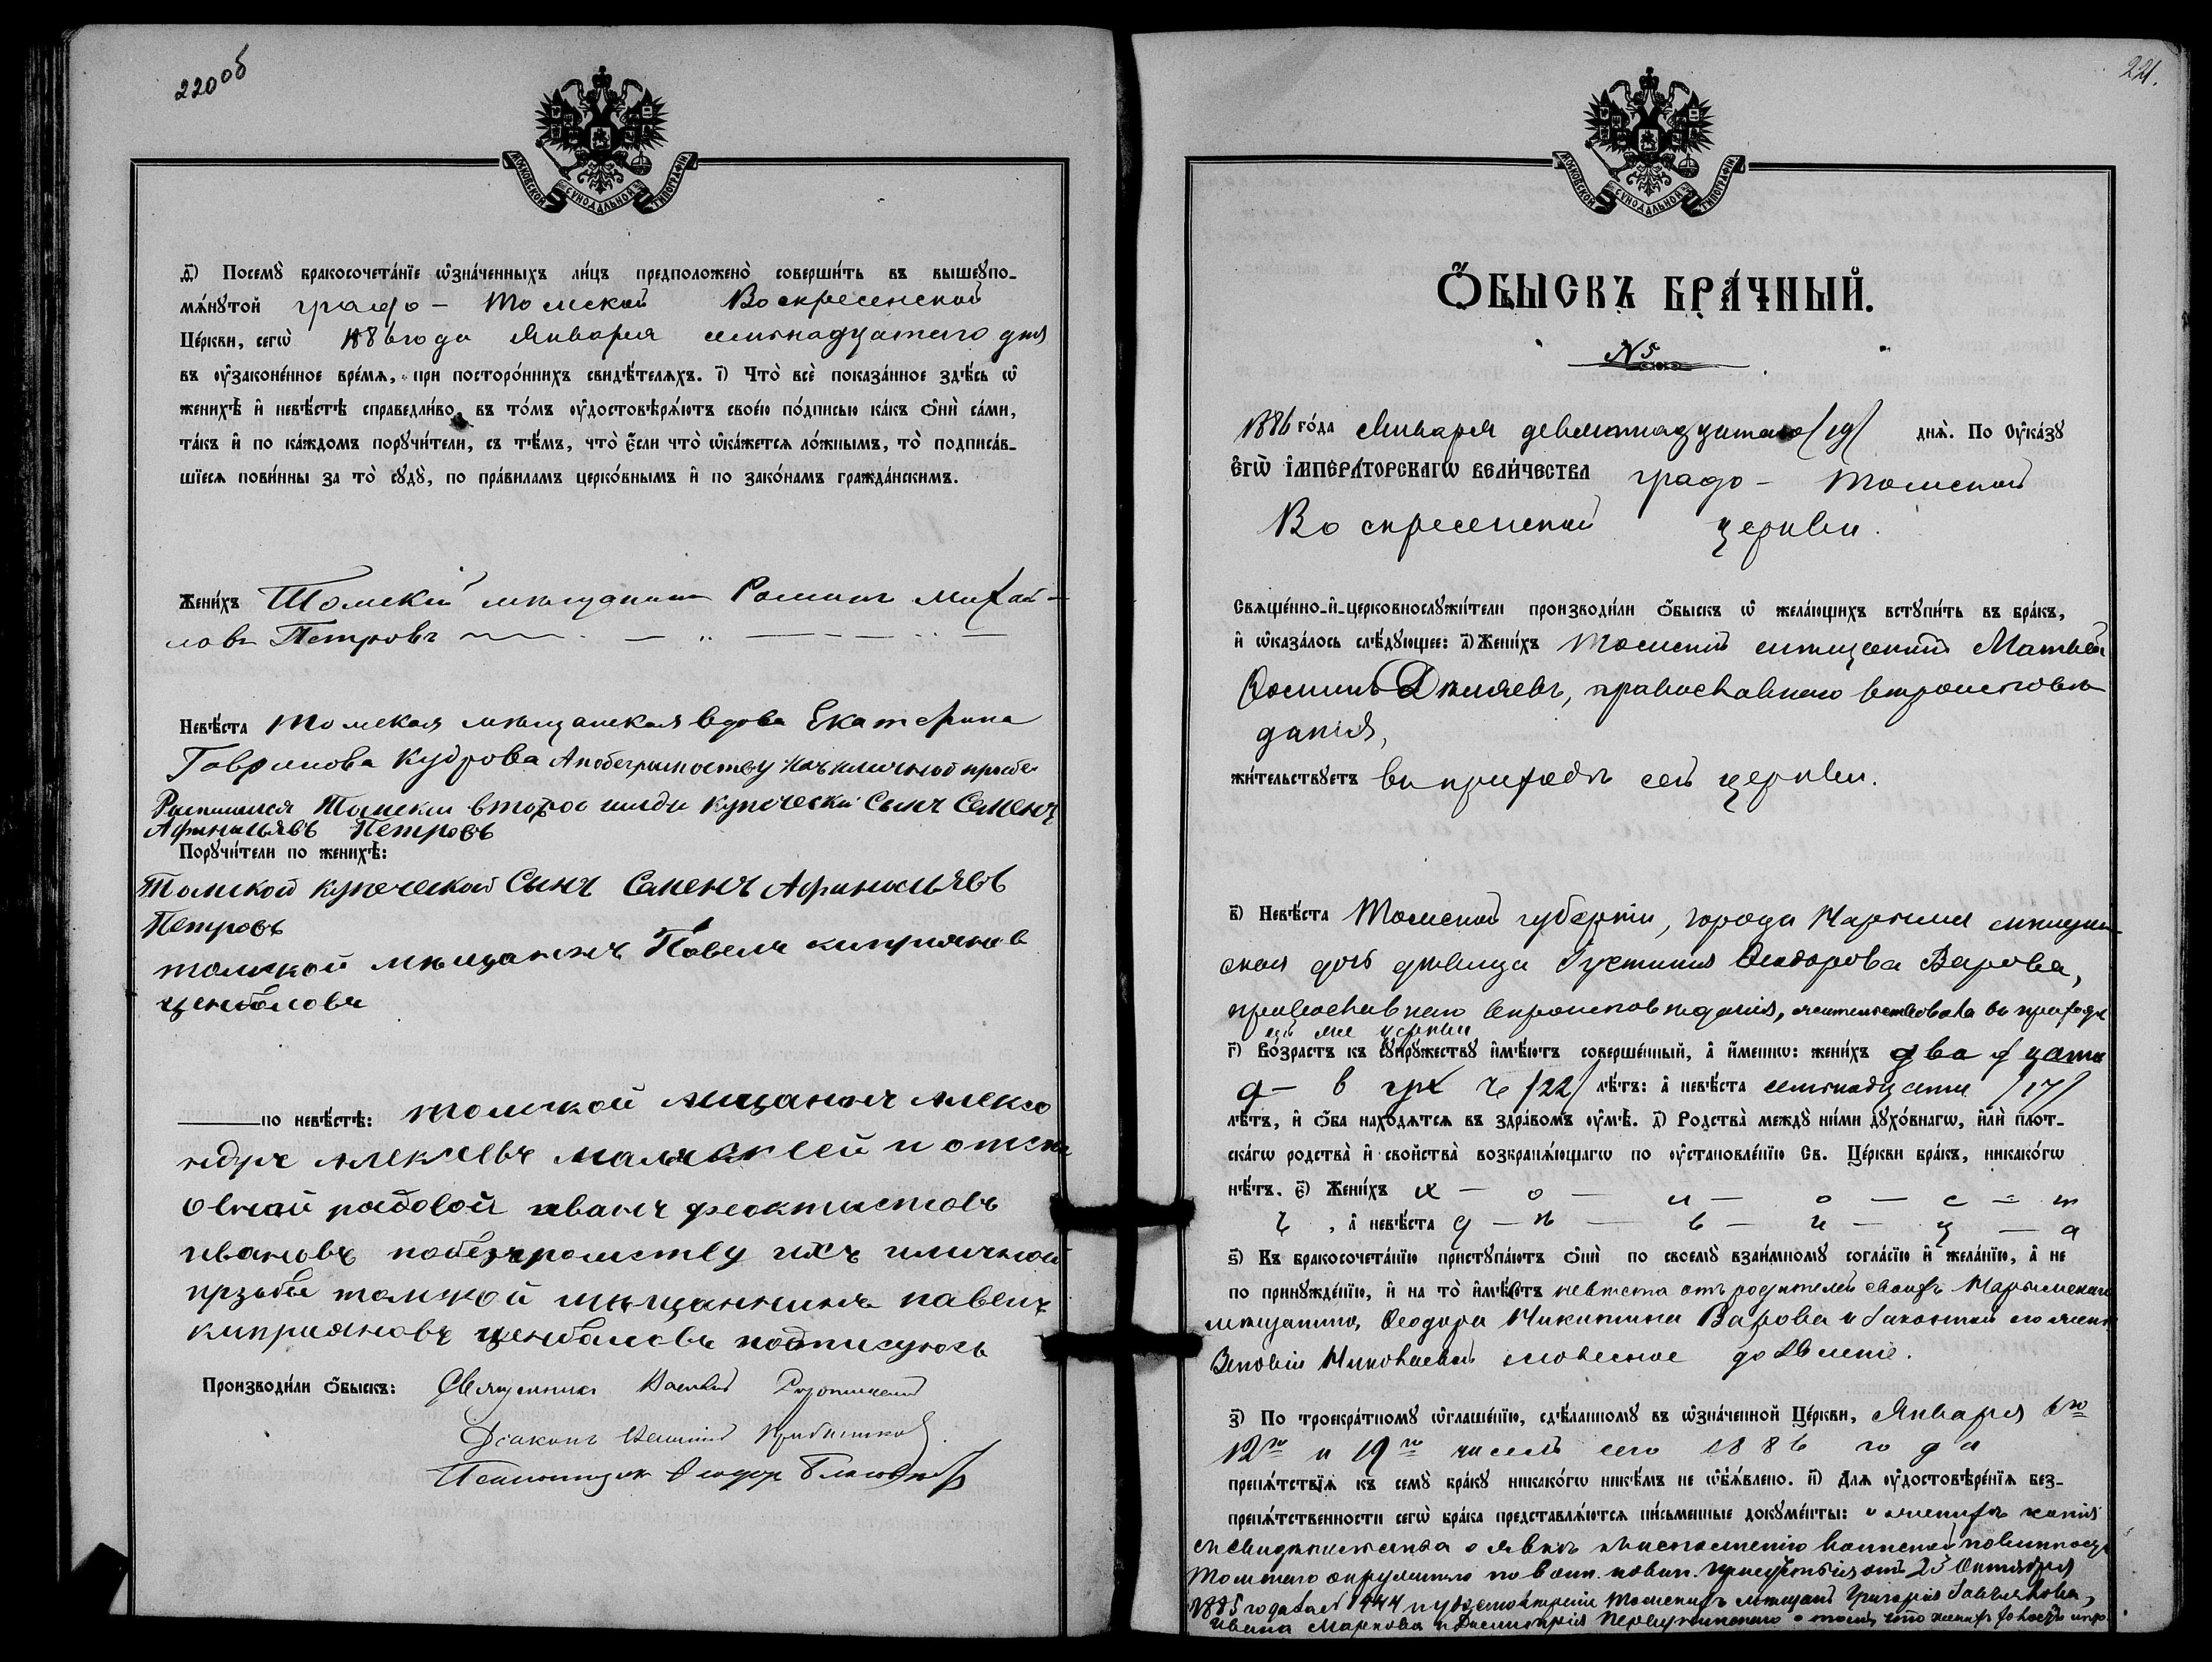 220 об
МОСКОВСКОЙ СѴНОДАЛЬНОЙ ТИПОГРАФІИ
д҃) Посемꙋ̀ бракосочета́нїе ѡ҆зна́ченныхъ ли́цъ предположено̀ соверши́ть въ вышеꙋпо-
мѧ́нꙋтой градо - Томской Воскресенской
Це́ркви, сегѡ̀ 1886 года Января семьнадцатаго дня
въ ᲂу҆законе́нное вре́мѧ, при посторо́ннихъ свидѣ́телѧхъ. і҃) Что̀ всѐ показа́нное здѣ́сь ѡ҆
женихѣ̀ и҆ невѣ́стѣ справедли́во, въ то́мъ ᲂу҆достовѣрѧ́ютъ свое́ю по́дписью ка́къ ѻ҆нѝ са́ми,
та́къ и҆ по ка́ждомъ порꙋчи́тели, съ тѣ́мъ, что̀ є҆́сли что̀ ѡ҆ка́жетсѧ ло́жнымъ, то̀ подписа́в-
шїесѧ пови́нны за то̀ сꙋдꙋ̀, по пра́виламъ церко́внымъ и҆ по зако́намъ гражда́нскимъ.
Жени́хъ Томскій мещанин Роман Михай-
ловъ Петровъ
Невѣ́ста Томская мѣщанская вдова Екатерина
Гаврилова Кудрова А побеграмотству
Томскій второй гильди купеческій Сынъ Семенъ
Афанасьявъ Петровъ
Порꙋчи́тели по женихѣ̀:
Томской купеческой Сынъ Семенъ Афанасьявъ
Петровъ
томской мѣщанинъ Павелъ киприянов
ценбаловъ
по невѣ́стѣ: томской мещанинъ Алекса
ндръ Алексѣевъ и отста
овной рядовой иванъ феоктистовъ
ивановъ побезграмству ихъ иличной
прзьбе томской мѣщанининъ павелъ
киприяновъ ценбаловъ подписуюсь
Производи́ли ѻ҆́быскъ: Священникъ Василій
Діаконъ
Псаломщик Ѳеодор
221.
МОСКОВСКОЙ СѴНОДАЛЬНОЙ ТИПОГРАФІИ
Ѻ҆́БЫСКЪ БРА́ЧНЫЙ.
№ 5
1886 го́да Января девятнадцатаго /19/ днѧ̀. По Оу҆ка́зꙋ
Є҆ГѠ̀ І҆МПЕРА́ТОРСКАГѠ ВЕЛИ́ЧЕСТВА градо - Томской
Воскресенской церкви.
Свѧще́нно-и҆-церковнослꙋжи́тели производи́ли ѻ҆́быскъ ѡ҆ жела́ющихъ встꙋпи́ть въ бра́къ,
и҆ ѡ҆каза́лось слѣ́дꙋющее: а҃) Жени́хъ Томскій мѣщанинъ Матвѣй
православнаго вѣроисповѣ-
данія,
жи́тельствꙋетъ въ приходѣ сей церкви.
в҃) Невѣ́ста Томской губерніи, города Нарыма мѣщан-
ская дочь дѣвица Іустинія Ѳеодорова Варова,
православнаго вѣроисповѣданія, жительствовала въ приходѣ
сей же церкви
г҃) Во́зрастъ къ сꙋпрꙋ́жествꙋ и҆мѣ́ютъ соверше́нный, а҆ и҆́меннѡ: жени́хъ двадцати
д - в ꙋх ъ /22/ лѣ́тъ: а҆ невѣ́ста семьнадцати /17/
лѣ́тъ, и҆ ѻ҆́ба нахо́дѧтсѧ въ здра́вомъ ᲂу҆мѣ̀. д҃) Родства̀ междꙋ̀ ни́ми дꙋхо́внагѡ, и҆лѝ пло́т-
ска́гѡ родства̀ и҆ сво́йства возкранѧ́ющагѡ по ᲂу҆становле́нїю Св. Це́ркви бра́къ, никако́гѡ
нѣ́тъ. є҃) Жени́хъ х - о - л - о - с - т
ъ, а҆ невѣ́ста д - ѣ - в - и - ц - а
ѕ҃) Къ бракосочета́нїю пристꙋпа́ютъ ѻ҆нѝ по своемꙋ̀ взаи́мномꙋ согла́сїю и҆ жела́нїю, а҆ не
по принꙋжде́нїю, и҆ на то̀ и҆мѣ́ютъ невѣста отъ родителей своихъ Нарымскаго
мѣщанина Ѳеодора Никитина Варова и законной его жены
Зиновіи Николаевой словесное дозволеніе.
з҃) По троекра́тномꙋ ѡ҆глаше́нїю, сдѣ́ланномꙋ въ ѡ҆зна́ченной Це́ркви, Января 6го
12го и 19го чиселъ сего 1886 года
препѧ́тствїѧ къ семꙋ̀ бра́кꙋ никако́гѡ никѣ́мъ не ѡ҆б̾ѧ́влено. и҃) Длѧ ᲂу҆достовѣре́нїѧ без-
препѧ́тственности сегѡ̀ бра́ка представлѧ́ютсѧ пи́сьменные докꙋме́нты: о женихѣ копія
съ свидѣтельства о явкѣ къ исполненію воинской повинности
Томскаго окружнаго по воин. повин. присутствія отъ 23 Октября
1885 года за № 1444 и удостовѣреніе Томскихъ мѣщанъ Григорія
Ивана Маркова и Димитрія о томъ, что женихъ холостъ